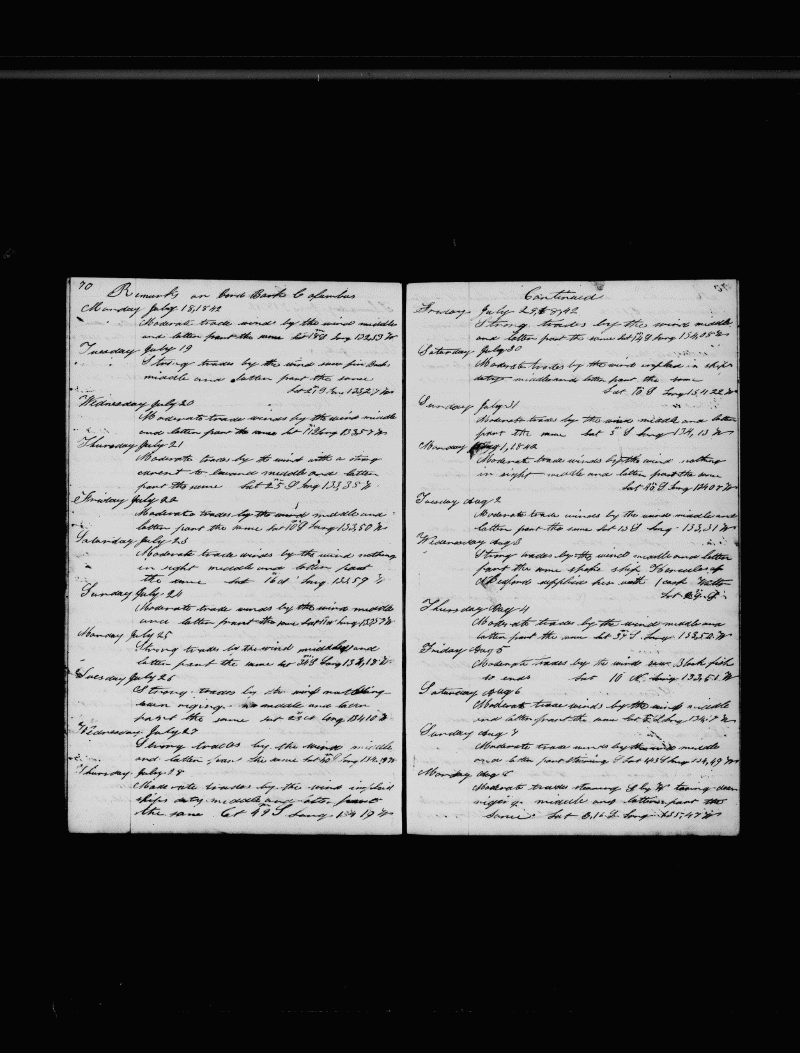 70
Remarks on bord Bark Columbus
Monday July 18, 1842
Moderate trade wind by the wind middle
and latter paart the same Lat Long 132,53 W
Tuesday July 19
Strong trades by the wind saw fin Back
middle and latter part the same
Lat Long 133,27 W
Wednesday July 20
Moderate trade winds by the wind middle
and latter part the same Lat Long 133,57 W
Thursday July 21
Moderate trade by the wind with a strong
current to leward middle and latter
part the same Lat Long 133,35 W
Friday July 22
Moderate trades by the wind middle and
latter part the same Lat Long 133,50 W
Saturday July 23
Moderate trade winds by the wind nothing
in sight middle and latter part
the same Lat 133,59 W
Sunday July 24
Moderate trade winds by the wind middle
and latter paart the same Lat Long 133,57 W
Monday July 25
Strong trades by the wind middle and
latter part the same Lat Long 134,18 W
Tuesday July 26
Strong trades by the wind
middle and latern
part the same Lat Long 134,10 W
Wednesday July 27
Strong trades by the wind middle
and latter part the same Lat Long 134,19 W
Thursday July 28
Moderate trades by the wind imploid
ships duty middle and latter part
the same Lat 49 S Long 134 19 W
Continued
Friday July 29, 1842
Strong trades by the wind middle
and latter part the same Lat Long 134,08 W
Saturday July 30
Moderate trades by the wind imploid in ships
duty middle and latter part the same
Lat S Long 134,22 W
Sunday July 31
Moderate trades by the wind middle and latter
part the same Lat 5 S Long 134,13 W
Monday Aug 1, 1842
Moderate trade winds by the wind nothing
in sight middle and latter part the same
Lat S Long 134,07 W
Tuesday Aug 2
Moderate trade winds by the wind middle and
latter part the same Lat S Long 133,31 W
Wednesday Aug 3
Strong trades by the wind middle and latter
part the same spoke ship Herculese of
N Bedford supplied her with 1 cask Watter
Lat
Thursday Aug 4
Moderate trades by the wind middle and
latter part the same Lat S Long 133,52 W
Friday Aug 5
Moderate trades by the wind saw black fish
so ends Lat 10 Long 133,51 W
Saturday Aug 6
Moderate trade winds by the wind middle
and latter paart the same Lat Long 134,7 W
Sunday Aug 7
Moderate trade wind by the wind middle
and latter part stearing S Lat Long 134,49 W
Monday Aug 8
Moderate trades stearing S by W tearing down
middle and latter part the
same Lat 8,16 S Long 135,47 W